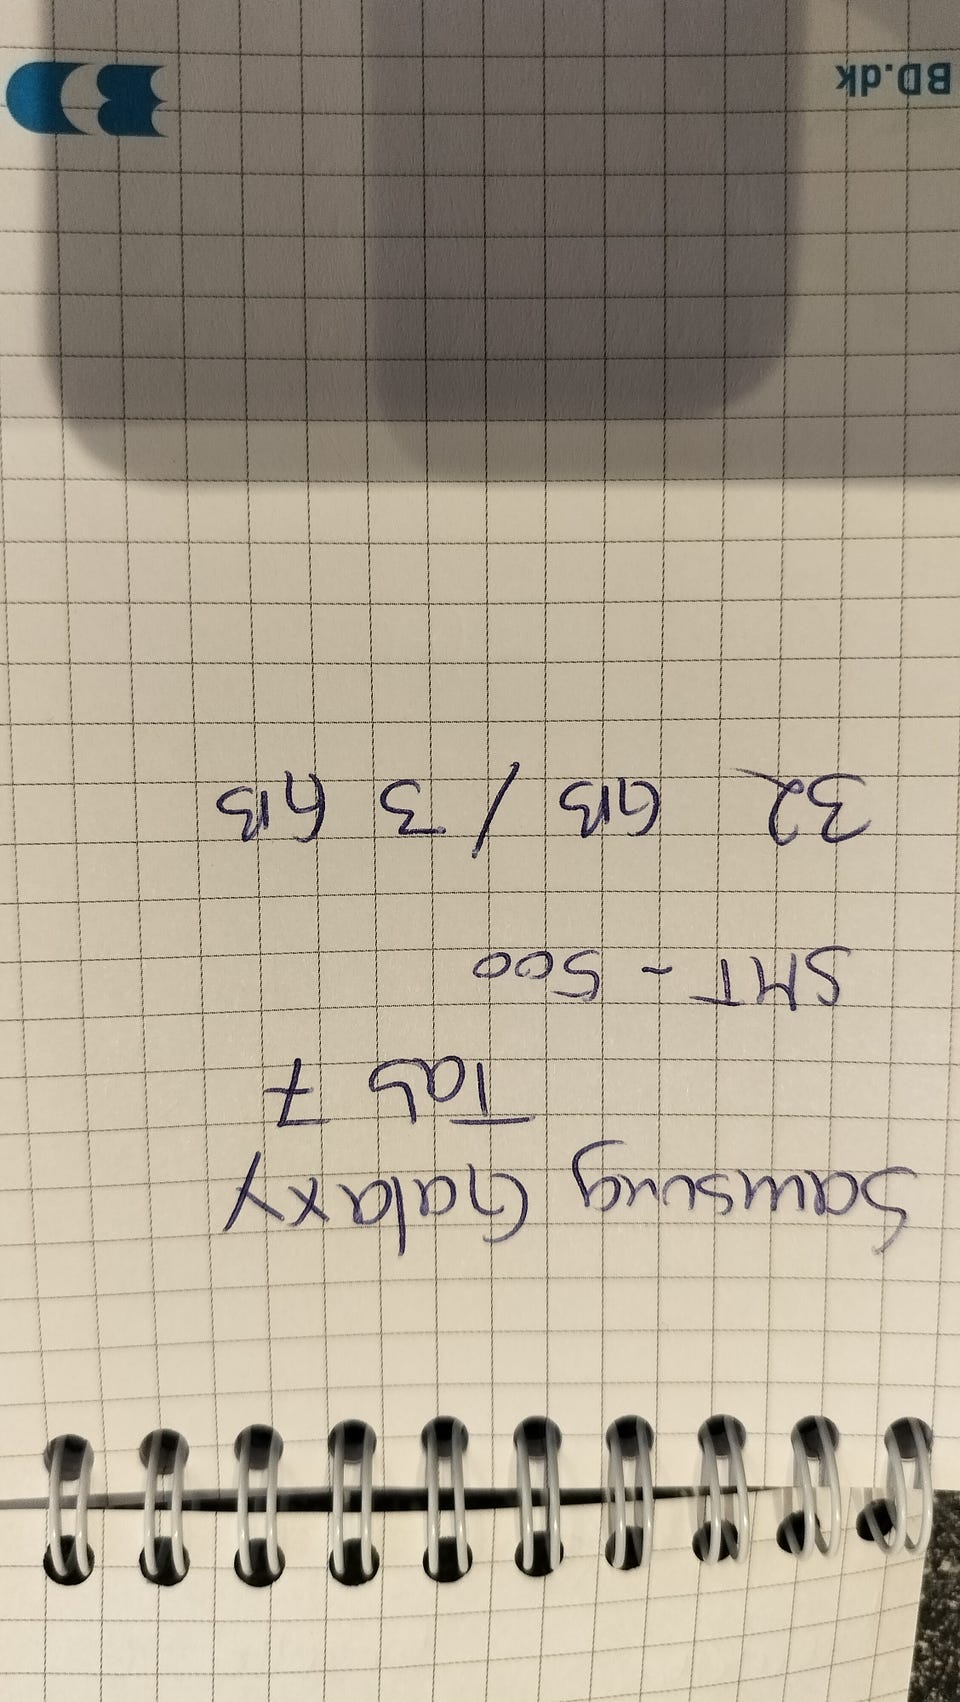 Samsung Galaxy
Tab 7
SMT - 500
32 GB / 3 GB
BD.dk